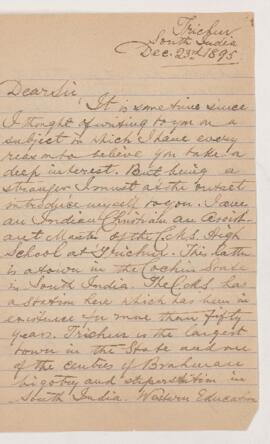 Trichur,
South India
Dec. 23rd 1895
Dear Sir,
It is some time since
I thought of writing to you on a
subject in which I have every
reason to believe you take a
deep interest. But being a
stranger I must at the outset
introduce myself to you. I am
an Indian Christian an Assist-
ant Master of the C.M.S. High
School at Trichur. This latter
is a town in the Cochin State
in South India. The C.M.S. has
a station here which has been in
existence for more than fifty
years. Trichur is the largest
town in the State and one
of the centres of Brahman
bigotry and superstition in
South India. Western Education